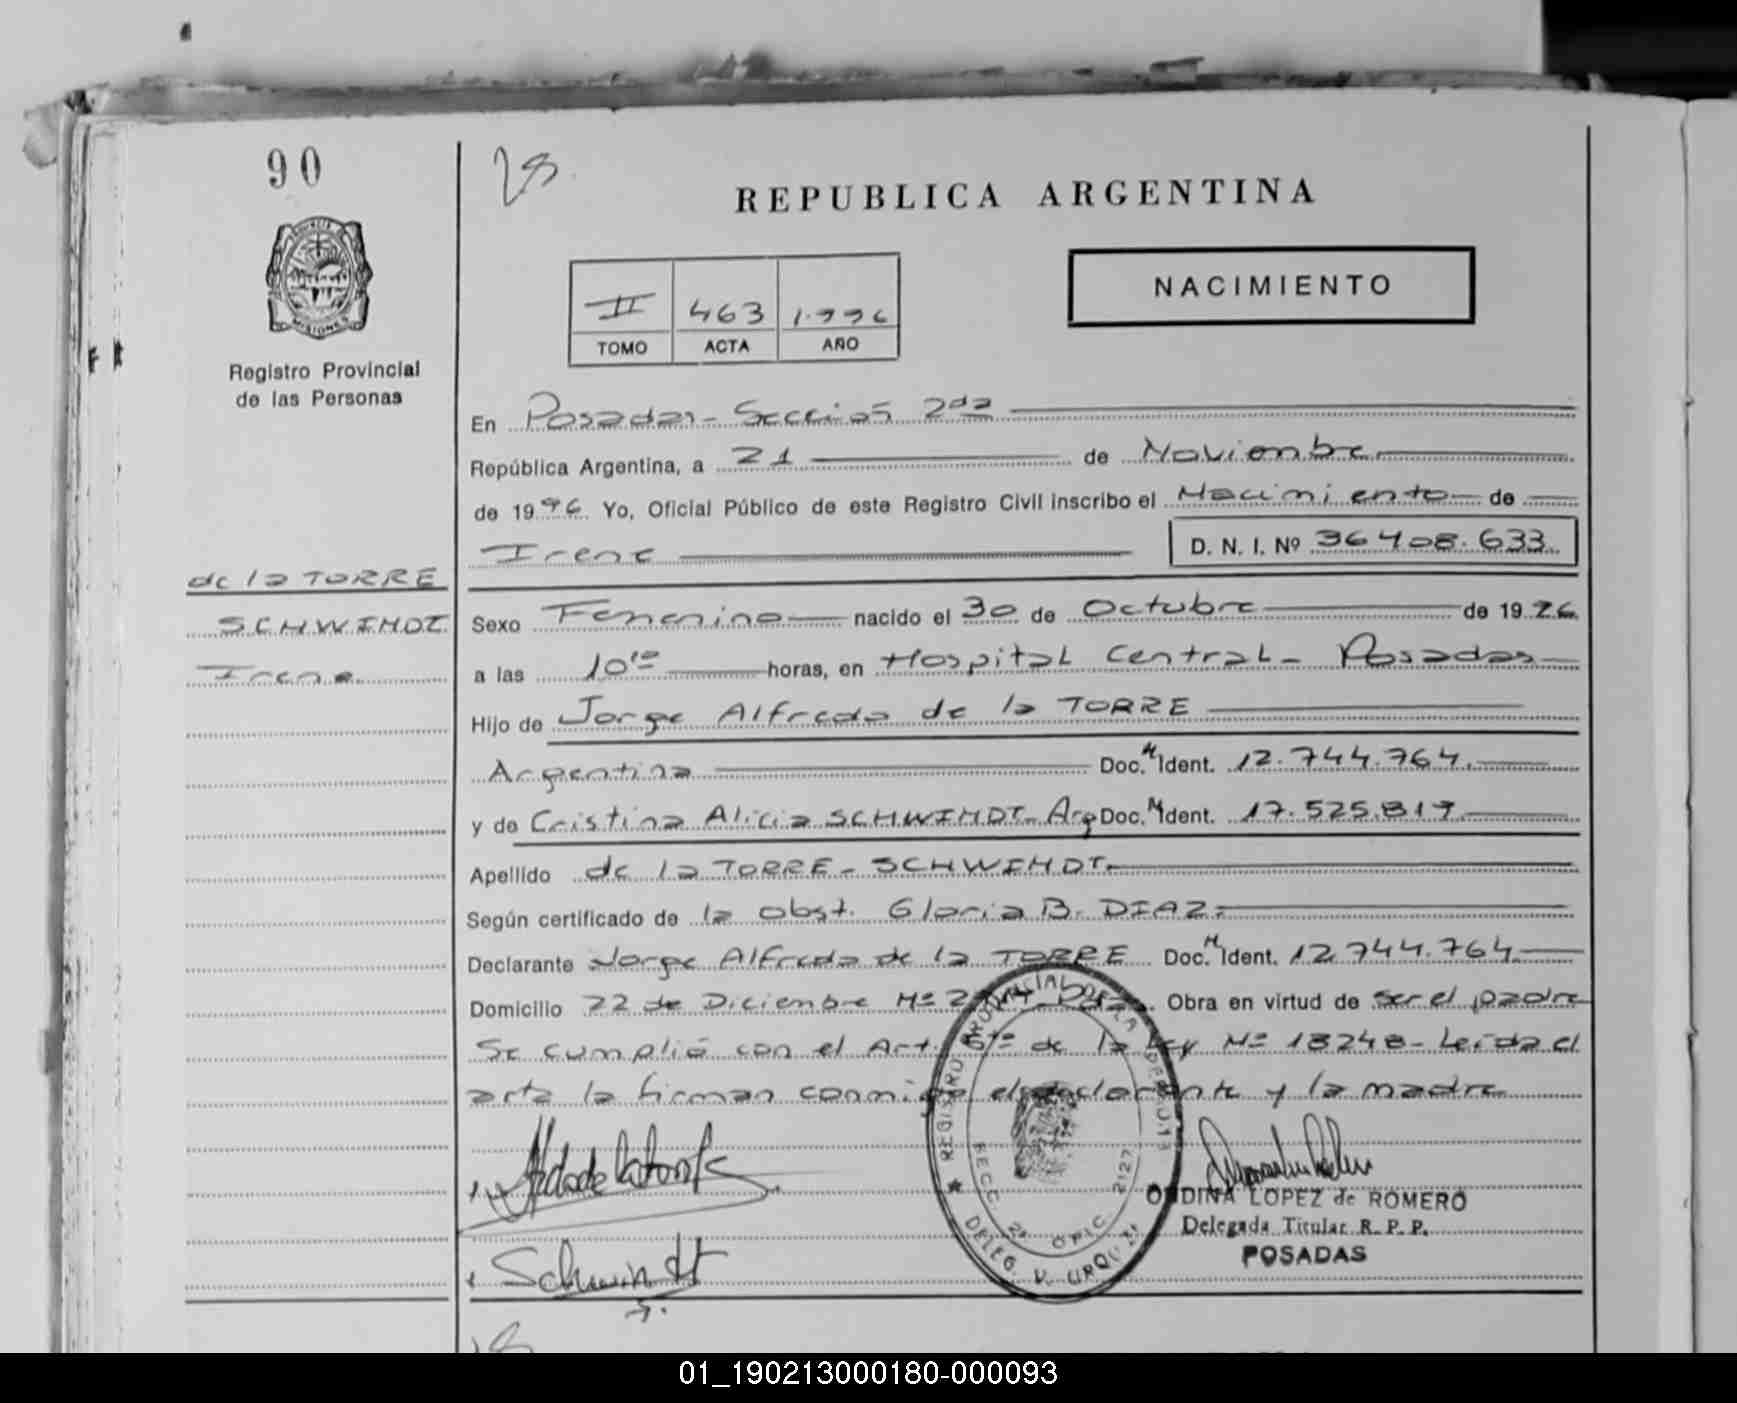 90
28
REPUBLICA ARGENTINA
PROVINCIA DE
MISIONES
Registro Provincial
de las Personas
II 463 1.996
TOMO ACTA AÑO
NACIMIENTO
En Posadas - Sección 2da
República Argentina, a 21 de Noviembre
de 1996. Yo, Oficial Público de este Registro Civil inscribo el Nacimiento de
Irene D. N. I. Nº 36408.633
de la TORRE
SCHWINDT
Irene
Sexo Femenino nacido el 30 de Octubre de 1996
a las 10:10 horas, en Hospital Central - Posadas
Hijo de Jorge Alfredo de la TORRE
Argentina Doc. N Ident. 12.744.764.
y de Cristina Alicia SCHWINDT - Arg Doc. N Ident. 17.525.817
Apellido de la TORRE - SCHWINDT.
Según certificado de la obst. Gloria B. DIAZ.
Declarante Jorge Alfredo de la TORRE Doc. N Ident. 12.744.764
Domicilio 22 de Diciembre Nº Obra en virtud de ser el padre
Se cumplió con el Art. 6to de la Ley Nº 18248 - Leída el
acta la firman conmigo el declarante y la madre
REGISTRO PROVINCIAL DE LA
SECC. 2ª OFIC. 2127
DELEG. V. URQUIZA
Schwindt
ONDINA LOPEZ de ROMERO
Delegada Titular R. P. P.
POSADAS
01_190213000180-000093